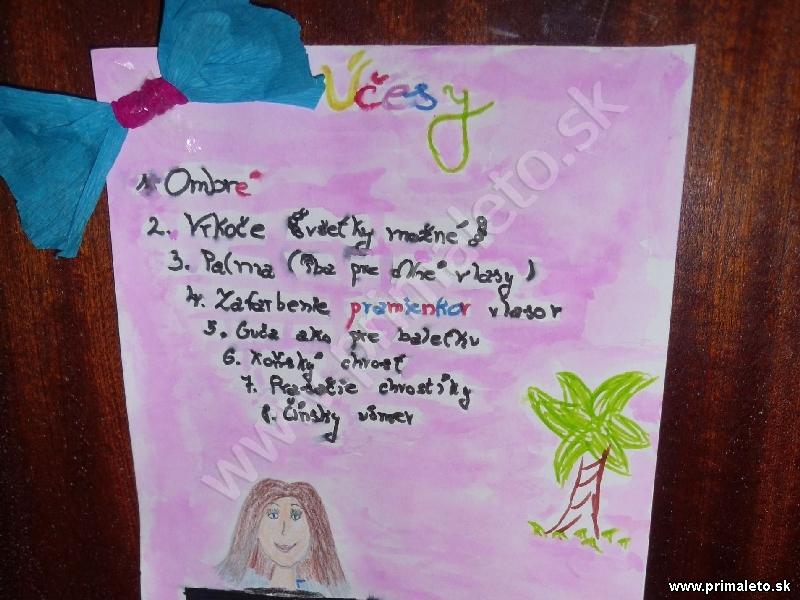 Účesy
1. Ombré
2. Vrkoče (všetky možné)
3. Palma (iba pre dlhé vlasy)
4. Zafarbenie pramienkov vlasov
5. Guča ako pre baletku
6. Konský chvost
7. Prasačie chvostíky
8. Čínsky účes
www.primaleto.sk
www.primaleto.sk